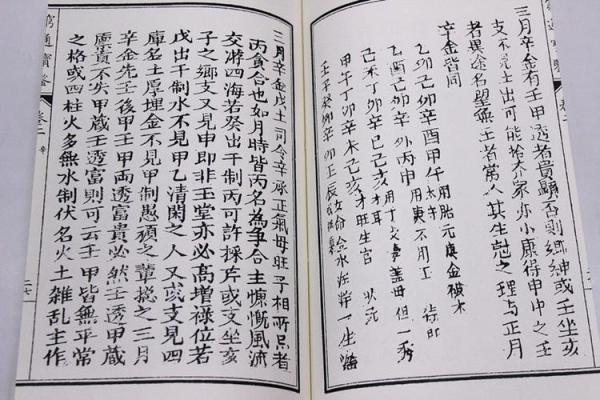 三月辛金有壬甲透者貴顯否則鄉紳或壬坐亥
支不見土出可能拾芥家亦小康得申中之壬
者異途名望無壬者常人其生剋之理与正月
辛金皆同
乙卯己卯辛酉甲午 用胎元庚金積木
乙酉己卯辛卯丙申 用庚不用丁
己未丁卯辛巳己亥
甲午丁卯辛未己亥才旺生官 狀元
壬子癸卯辛卯壬辰 女命金水淫 一生
三月辛金戊土司令辛承正氣母旺子相所忌者
丙貪合也如月時皆丙名為争合主慷慨風流
交游四海若癸出干制丙可許採芹或支坐亥
子之鄉支又見申即非玉堂亦必高增祿位若
戊出干制水不見甲乙清閑之人又或支見四
庫名土厚埋金不見甲制愚頑之輩揔之三月
辛金先壬後甲壬甲兩透富貴必然壬透甲藏
廩貢不失甲藏壬透富則可云壬甲皆無平常
之格或四柱火多無水制伏名火土雜乱主作
窮通寶鑒 卷二 辛